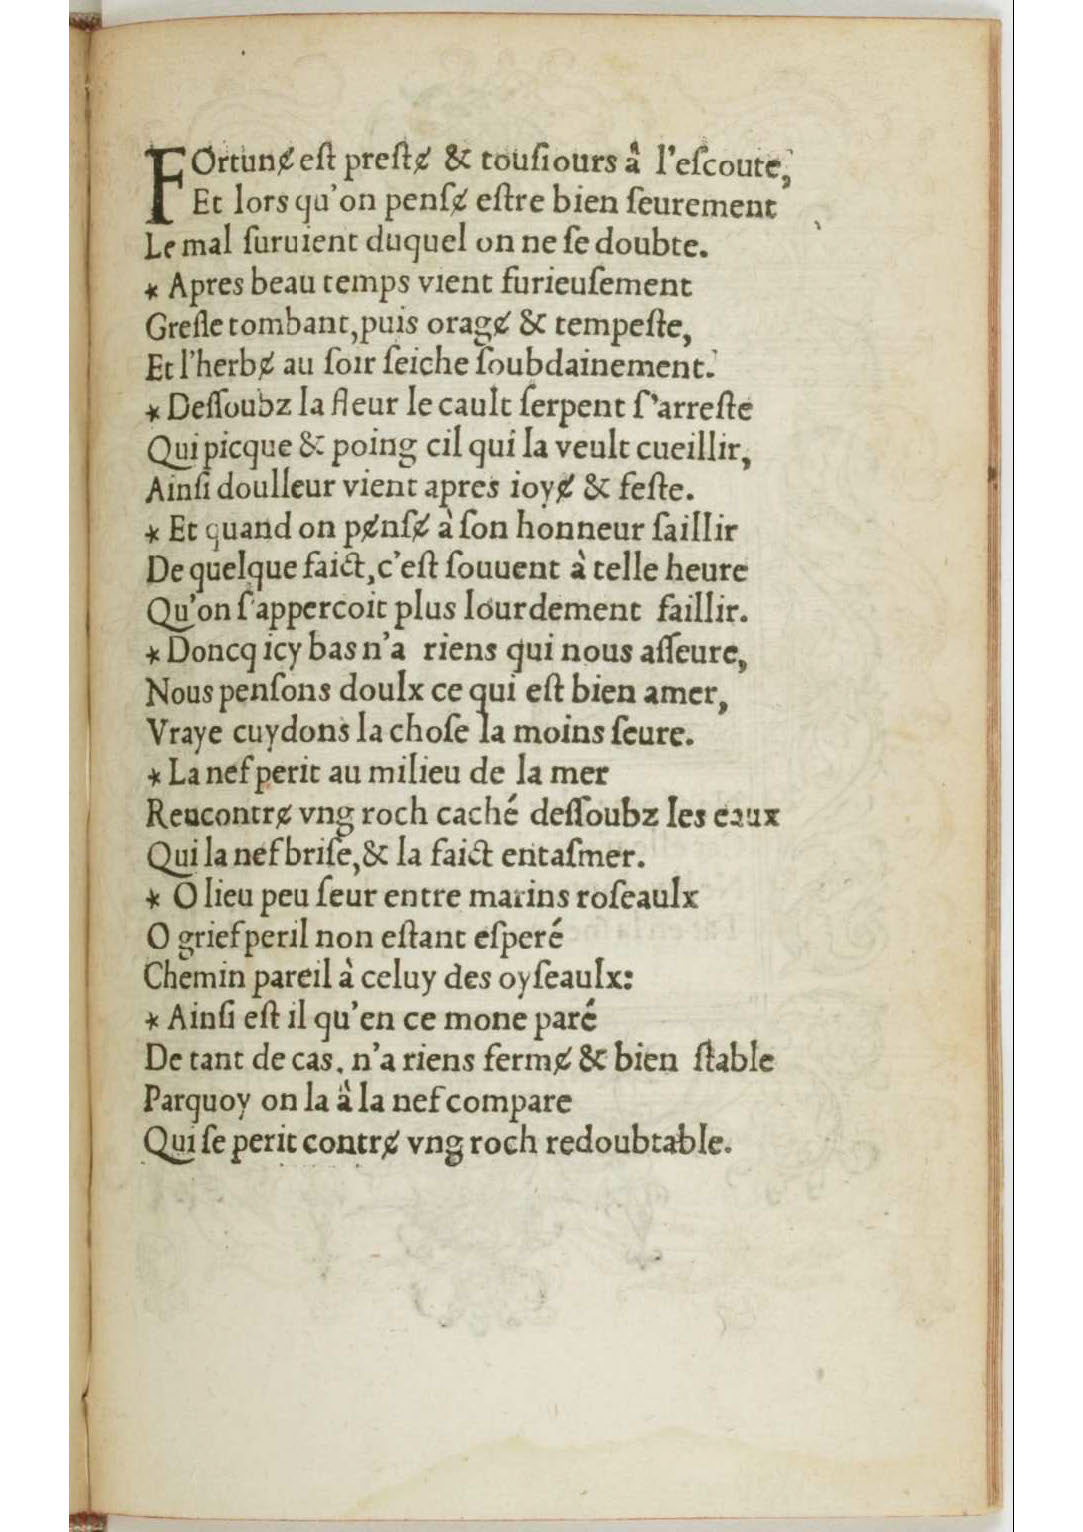 FOrtunɇ eſt preſtɇ & touſiours â l'eſcoute,
Et lors qu'on penſɇ eſtre bien ſeurement
Le mal ſuruient duquel on ne ſe doubte.
* Apres beau temps vient furieuſement
Greſle tombant, puis oragɇ & tempeſte,
Et l'herbɇ au ſoir ſeiche ſoubdainement.
* Deſſoubz la fleur le cault ſerpent ſ'arreſte
Qui picque & poing cil qui la veult cueillir,
Ainſi doulleur vient apres ioyɇ & feſte.
* Et quand on pɇnſɇ à ſon honneur ſaillir
De quelque faict, c'eſt ſouuent à telle heure
Qu'on ſ'appercoit plus lourdement faillir.
* Doncq icy bas n'a riens qui nous aſſeure,
Nous penſons doulx ce qui eſt bien amer,
Vraye cuydons la choſe la moins ſeure.
* La nef perit au milieu de la mer
Reucontrɇ vng roch caché deſſoubz les eaux
Qui la nef briſe, & la faict entaſmer.
* O lieu peu ſeur entre marins roſeaulx
O grief peril non eſtant eſperé
Chemin pareil à celuy des oyſeaulx:
* Ainſi eſt il qu'en ce mone paré
De tant de cas, n'a riens fermɇ & bien ſtable
Parquoy on la â la nef compare
Qui ſe perit contrɇ vng roch redoubtable.